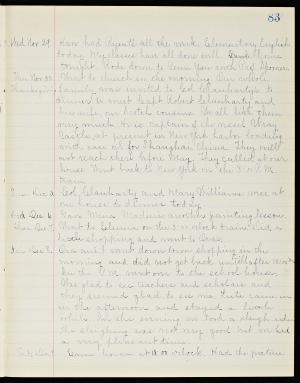 83
Wed Nov. 29. Have had Regents all the week. Elementary English
today. My classes had all done well. Came home
tonight. Rode down to Penn Yan with Prof. Spooner.
Thu Nov. 30. Went to church in the morning. Our whole
Thanksgiving family was invited to Col. Clanharty's to
dinner to meet Capt Robert Clanharty and
his wife, our Scotch cousins. We all liked them
very much. He is Captain of the vessel
Castle, at present in New York harbor loading
with case oil for Shanghai China. They will
not reach there before May. They called at our
house. Went back to New York on the P.M.
train.
Sat. Dec. 2. Col. Clanharty and Mary Williams were at
our house to dinner today.
Wed. Dec. 6. Gave Miss Madison another painting lesson.
Thu. Dec. 7. Went to on the o'clock train. Did a
little shopping and went to
Fri. Dec. 8. and I went down town shopping in the
morning and did not get back until after
In the P.M. went over to the school house.
Was glad to see teachers and scholars and
they seemed glad to see me. came in
in the afternoon and stayed a little
while. In the evening we took a sleigh ride.
The sleighing was not very good but we had
a very pleasant time.
Sat. Dec. 9. Came home at 10 o'clock. Had the